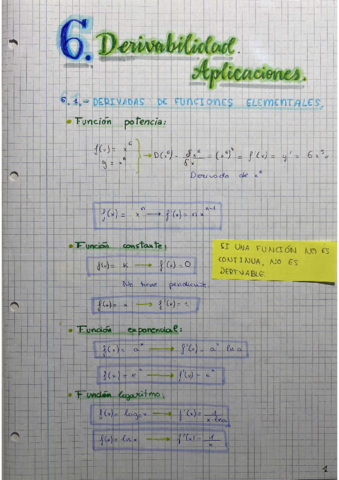 6. Derivabilidad.
Aplicaciones.
6.1.- DERIVADAS DE FUNCIONES ELEMENTALES.
• Función potencia:
f(x) = x⁶
y = x⁶
→ D(x⁶) = δx⁶/δx = (x⁶)' = f'(x) = y' = 6x⁵
Derivada de x⁶
f(x) = xⁿ → f'(x) = n·xⁿ⁻¹
• Función constante:
f(x) = K → f'(x) = 0
No tiene pendiente
f(x) = x → f'(x) = 1
SI UNA FUNCIÓN NO ES
CONTINUA, NO ES
DERIVABLE.
• Función exponencial:
f(x) = aˣ → f'(x) = aˣ · ln a
f(x) = eˣ → f'(x) = eˣ
• Función logaritmo:
f(x) = logₐ x → f'(x) = 1/(x · ln a)
f(x) = ln x → f'(x) = 1/x
1